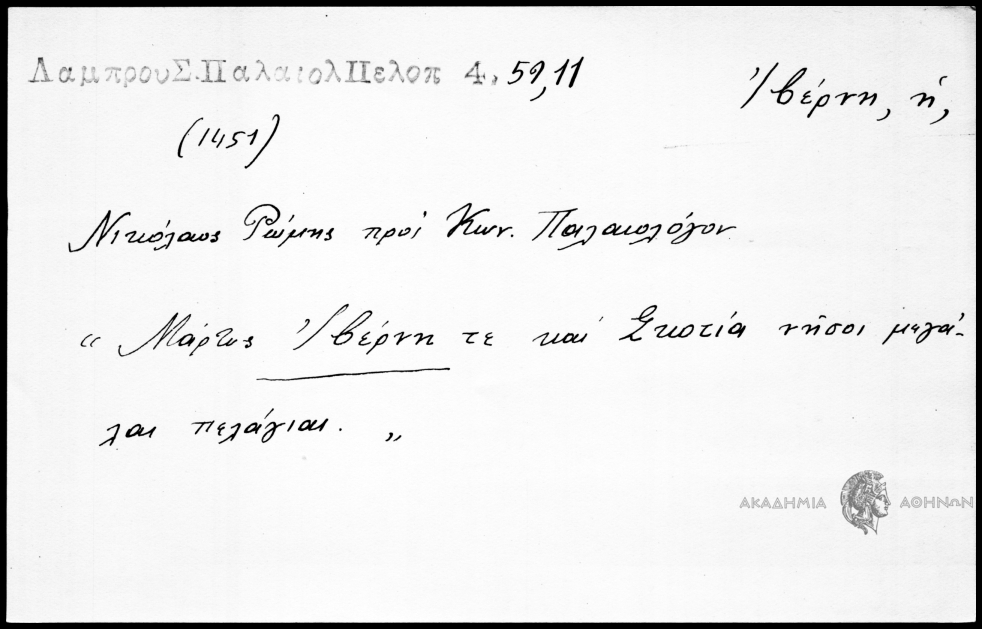 ΛαμπρουΣ.ΠαλαιολΠελοπ 4, 59,11
Ἰβέρνη, ἡ,
(1451)
Νικόλαος Ρώμης πρὸς Κων. Παλαιολόγον
“ Μάρτυς Ἰβέρνη τε καὶ Σκοτία νῆσοι μεγά-
λαι πελάγιαι. ”
ΑΚΑΔΗΜΙΑ ΑΘΗΝΩΝ